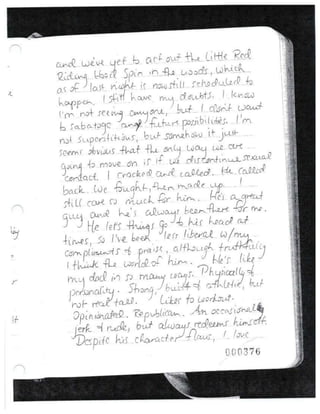 and we've yet to act out the Little Red
Riding Hood Spin in the woods, which
as of last night is now still scheduled to
happen. I still have my doubts. I know
I'm not seeing anyone, but I didn't want
to sabotage any future possibilities. I'm
not superstitious, but somehow it just
seems obvious that the only way we are
going to move on is if we discontinue sexual
contact. I cracked and called. He called
back. We fought, then made up. I
still care so much for him. He's a great
guy and he's always been there for me.
He lets things go to his head at
times, so I've been less liberal w/my
compliments & praise, although truthfully
I think the world of him. He's like
my dad in so many ways. Physically &
personality. Strong, built & athletic, but
not real tall. Likes to workout.
Opinionated. Republican. An occasional
jerk & rude, but always redeems himself.
Despite his character flaws, I love
000376